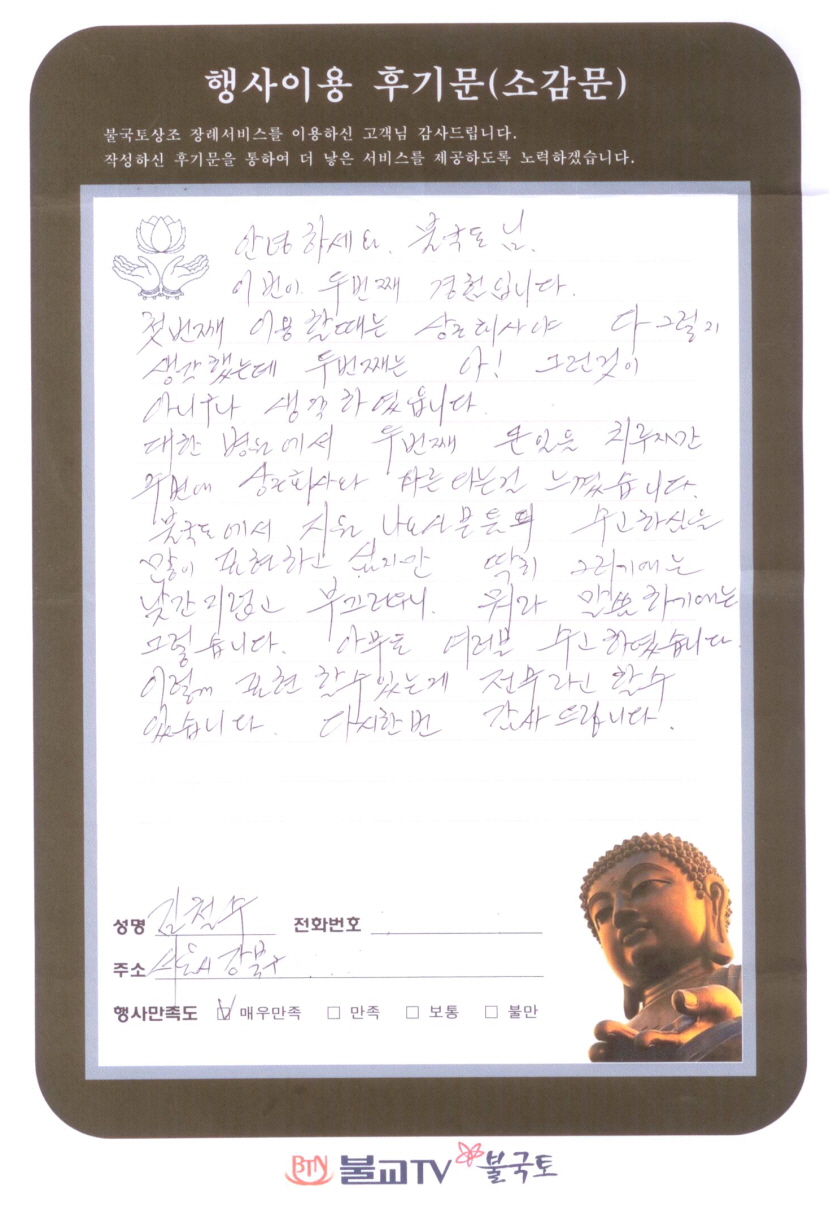 행사이용 후기문(소감문)
불국토상조 장례서비스를 이용하신 고객님 감사드립니다.
작성하신 후기문을 통하여 더 낳은 서비스를 제공하도록 노력하겠습니다.
안녕하세요. 불국토 님.
이번이 두번째 경험입니다.
첫번째 이용할때는 상조회사야 다 그렇지
생각했는데 두번째는 아! 그런것이
아니구나 생각하였읍니다.
대한병원에서 두번째 큰일을 치루자간
두번에 상조회사와 다른다는걸 느꼈습니다.
불국토에서 지원 나오신분들의 수고하심을
많이 표현하고 싶지만 딱히 그러기에는
낯간지럽고 부끄러우니. 뭐라 말씀하기에는
그렇습니다. 아무튼 여러분 수고하였습니다.
이렇게 표현 할수있는게 전부라고 할수
있습니다. 다시한번 감사 드립니다.
성명 김철수 전화번호
주소 서울시 강북구
행사만족도 매우만족 만족 보통 불만
BTN 불교TV 불국토